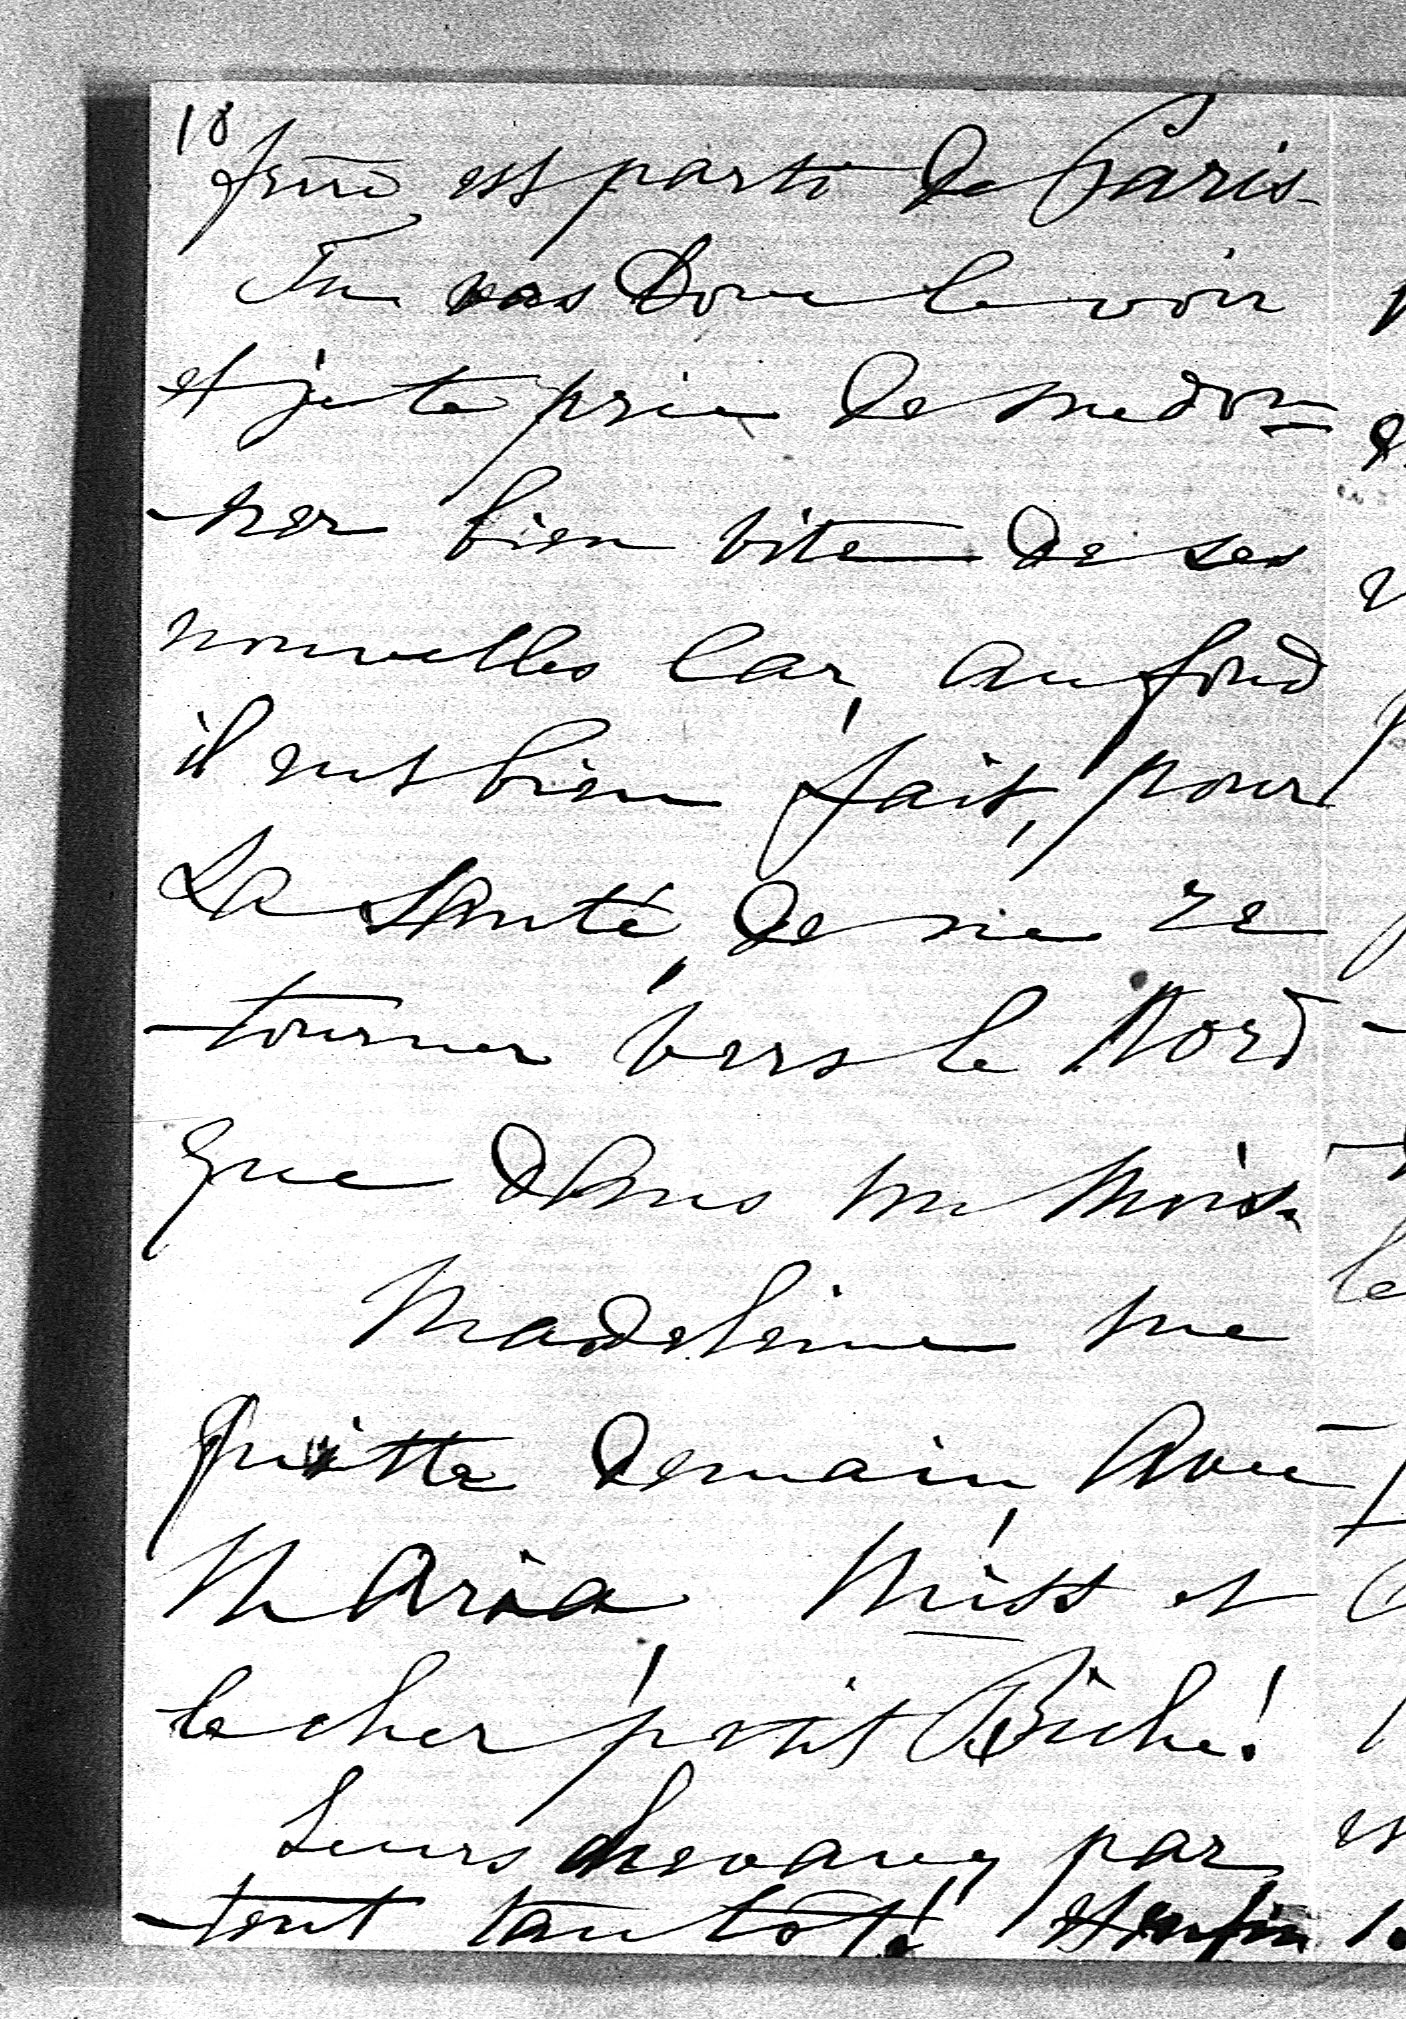 18
est parti de Paris -
Tu vas donc le voir
et je te prie de me don
-ner bien vite de ses
nouvelles car, au fond
il eut bien fait, pour
sa santé, de ne re
-tourner vers le Nord
que dans un mois.
Madeleine me
quitte demain, avec
Maria, Miss et
le cher petit Biche!
Leurs chevaux par
-tent tantôt! enfin